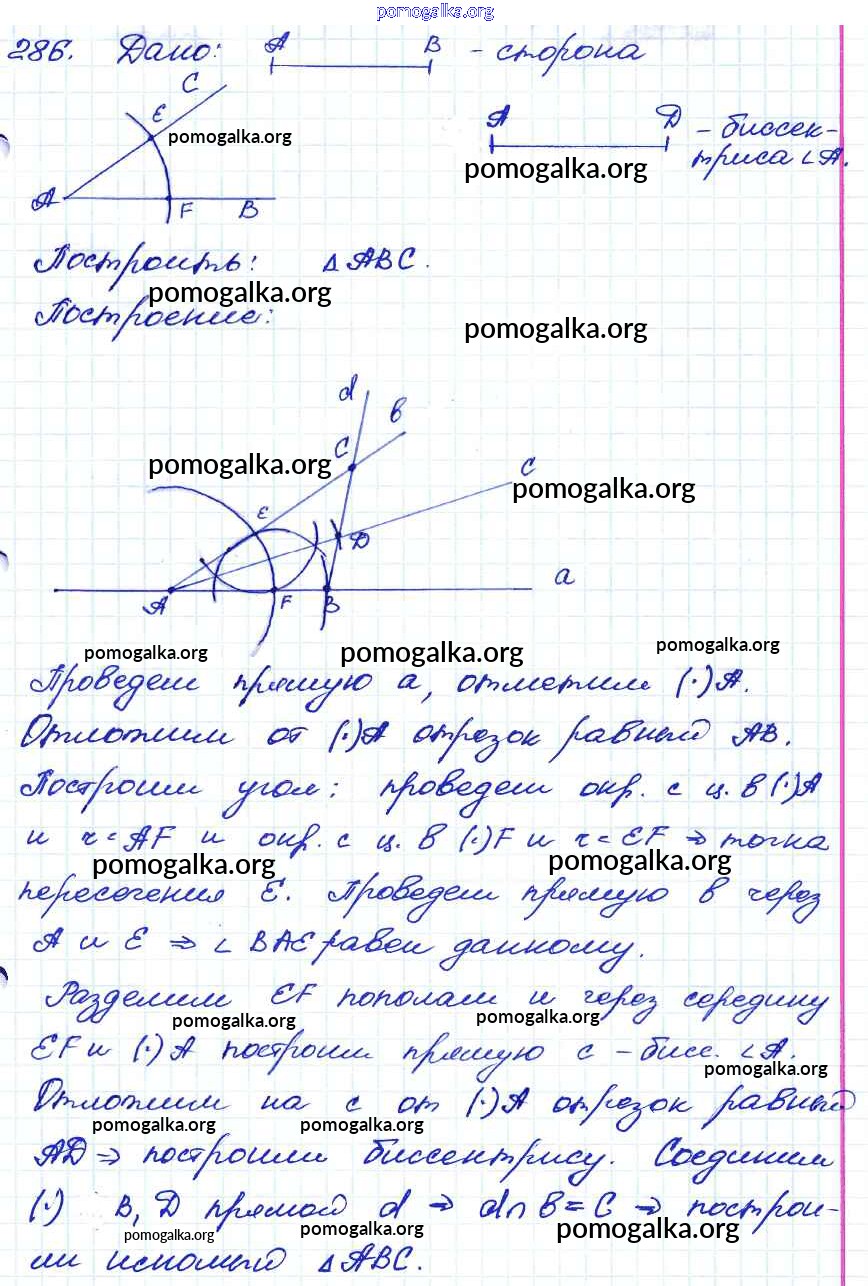 pomogalka.org
286. Дано: A B - сторона
C
E
pomogalka.org
A D - биссек-
pomogalka.org
триса ∠A.
A F B
Построить: △ABC.
pomogalka.org
Построение:
pomogalka.org
d
в
C
pomogalka.org
C
pomogalka.org
E
D
a
A F B
pomogalka.org pomogalka.org pomogalka.org
Проведем прямую a, отметим (·)A.
Отложим от (·)A отрезок равный AB.
Построим угол: проведем окр. с ц. в (·)A
и r=AF и окр. с ц. в (·)F и r=EF ⇒ точка
pomogalka.org pomogalka.org
пересечения E. Проведем прямую в через
A и E ⇒ ∠BAE равен данному.
Разделим EF пополам и через середину
pomogalka.org pomogalka.org
EF и (·)A построим прямую c - бисс. ∠A.
pomogalka.org
Отложим на c от (·)A отрезок равный
pomogalka.org pomogalka.org
AD ⇒ построили биссектрису. Соединим
(·) B, D прямой d ⇒ d∩в=C ⇒ построи-
pomogalka.org pomogalka.org pomogalka.org
ли искомый △ABC.